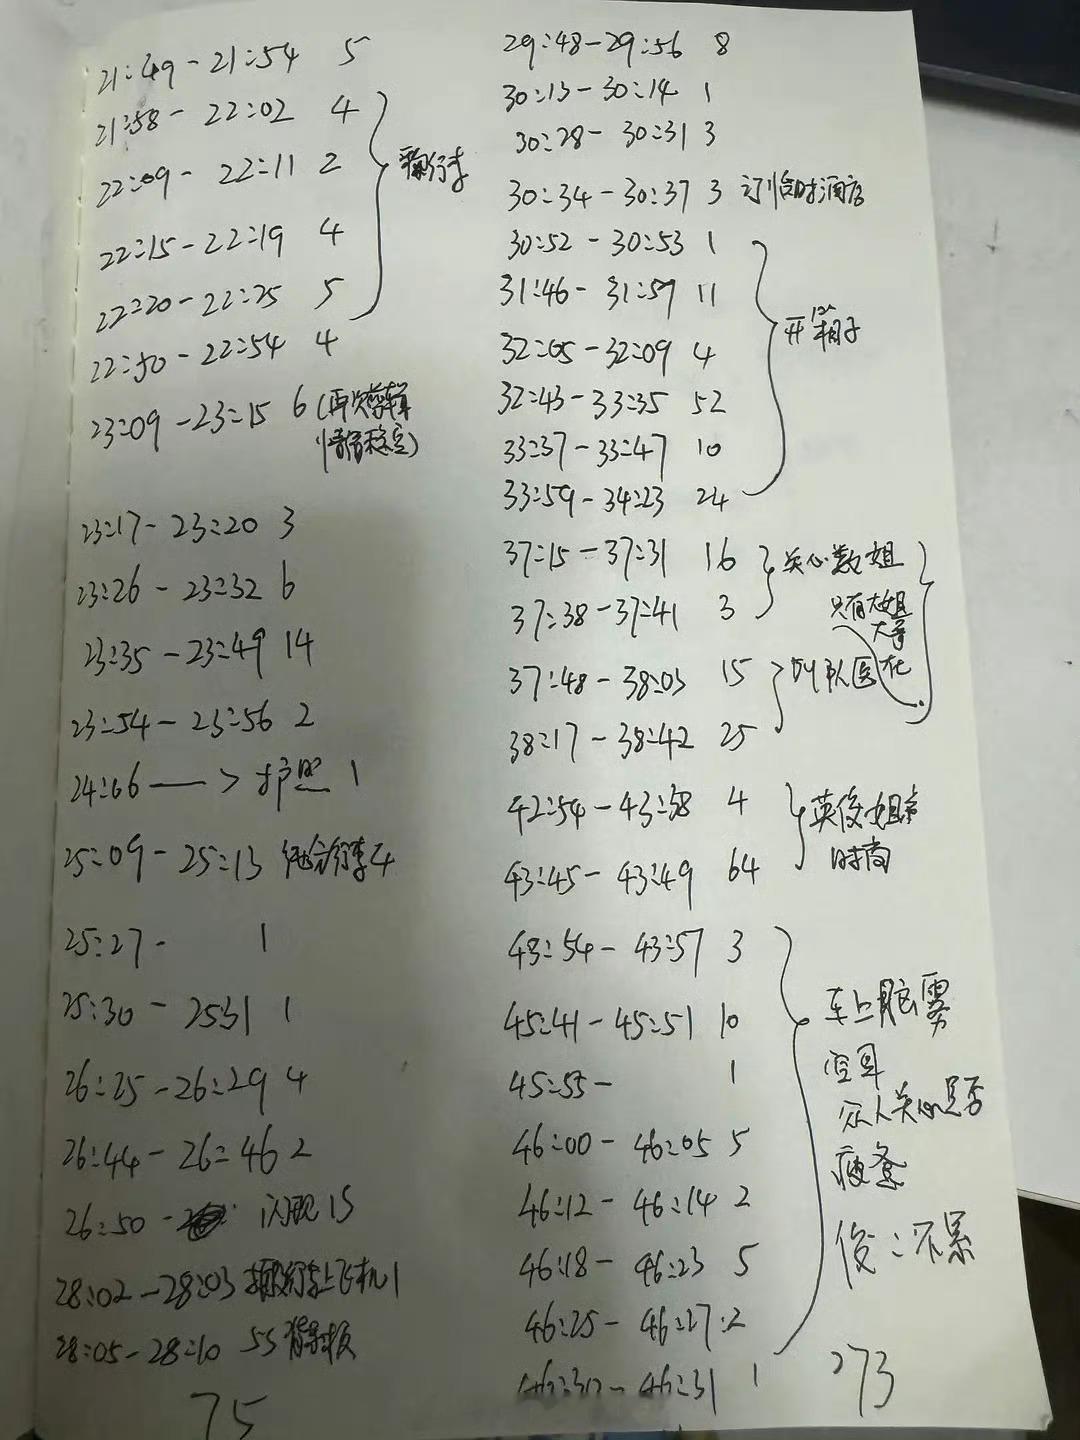 21:49-21:54 5
21:58-22:02 4
22:09-22:11 2 行李
22:15-22:19 4
22:20-22:25 5
22:50-22:54 4
23:09-23:15 6 (再次剪辑
23:17-23:20 3
23:26-23:32 6
23:35-23:49 14
23:54-23:56 2
24:06 —> 护照 1
25:09-25:13 行李 4
25:27- 1
25:30-2531 1
26:25-26:29 4
26:44-26:46 2
26:50- 闪现 1S
28:02-28:03 行李上飞机 1
28:05-28:10 5S 背
75
29:48-29:56 8
30:13-30:14 1
30:28-30:31 3
30:34-30:37 3 订临时酒店
30:52-30:53 1
31:46-31:59 11
32:05-32:09 4 开箱子
32:43-33:35 52
33:37-33:47 10
33:59-34:23 24
37:15-37:31 16 关心数姐
只有大姐
37:38-37:41 3
37:48-38:03 15 队医在
38:17-38:42 25
42:54-43:58 4 英俊姐
时尚
43:45-43:49 64
43:54-43:57 3
45:41-45:51 10 车上脑雾
45:55- 1 空耳
众人关心是否
46:00-46:05 5 疲惫
46:12-46:14 2
46:18-46:23 5 俊:不累
46:25-46:27 2
46:30-46:31 1
273